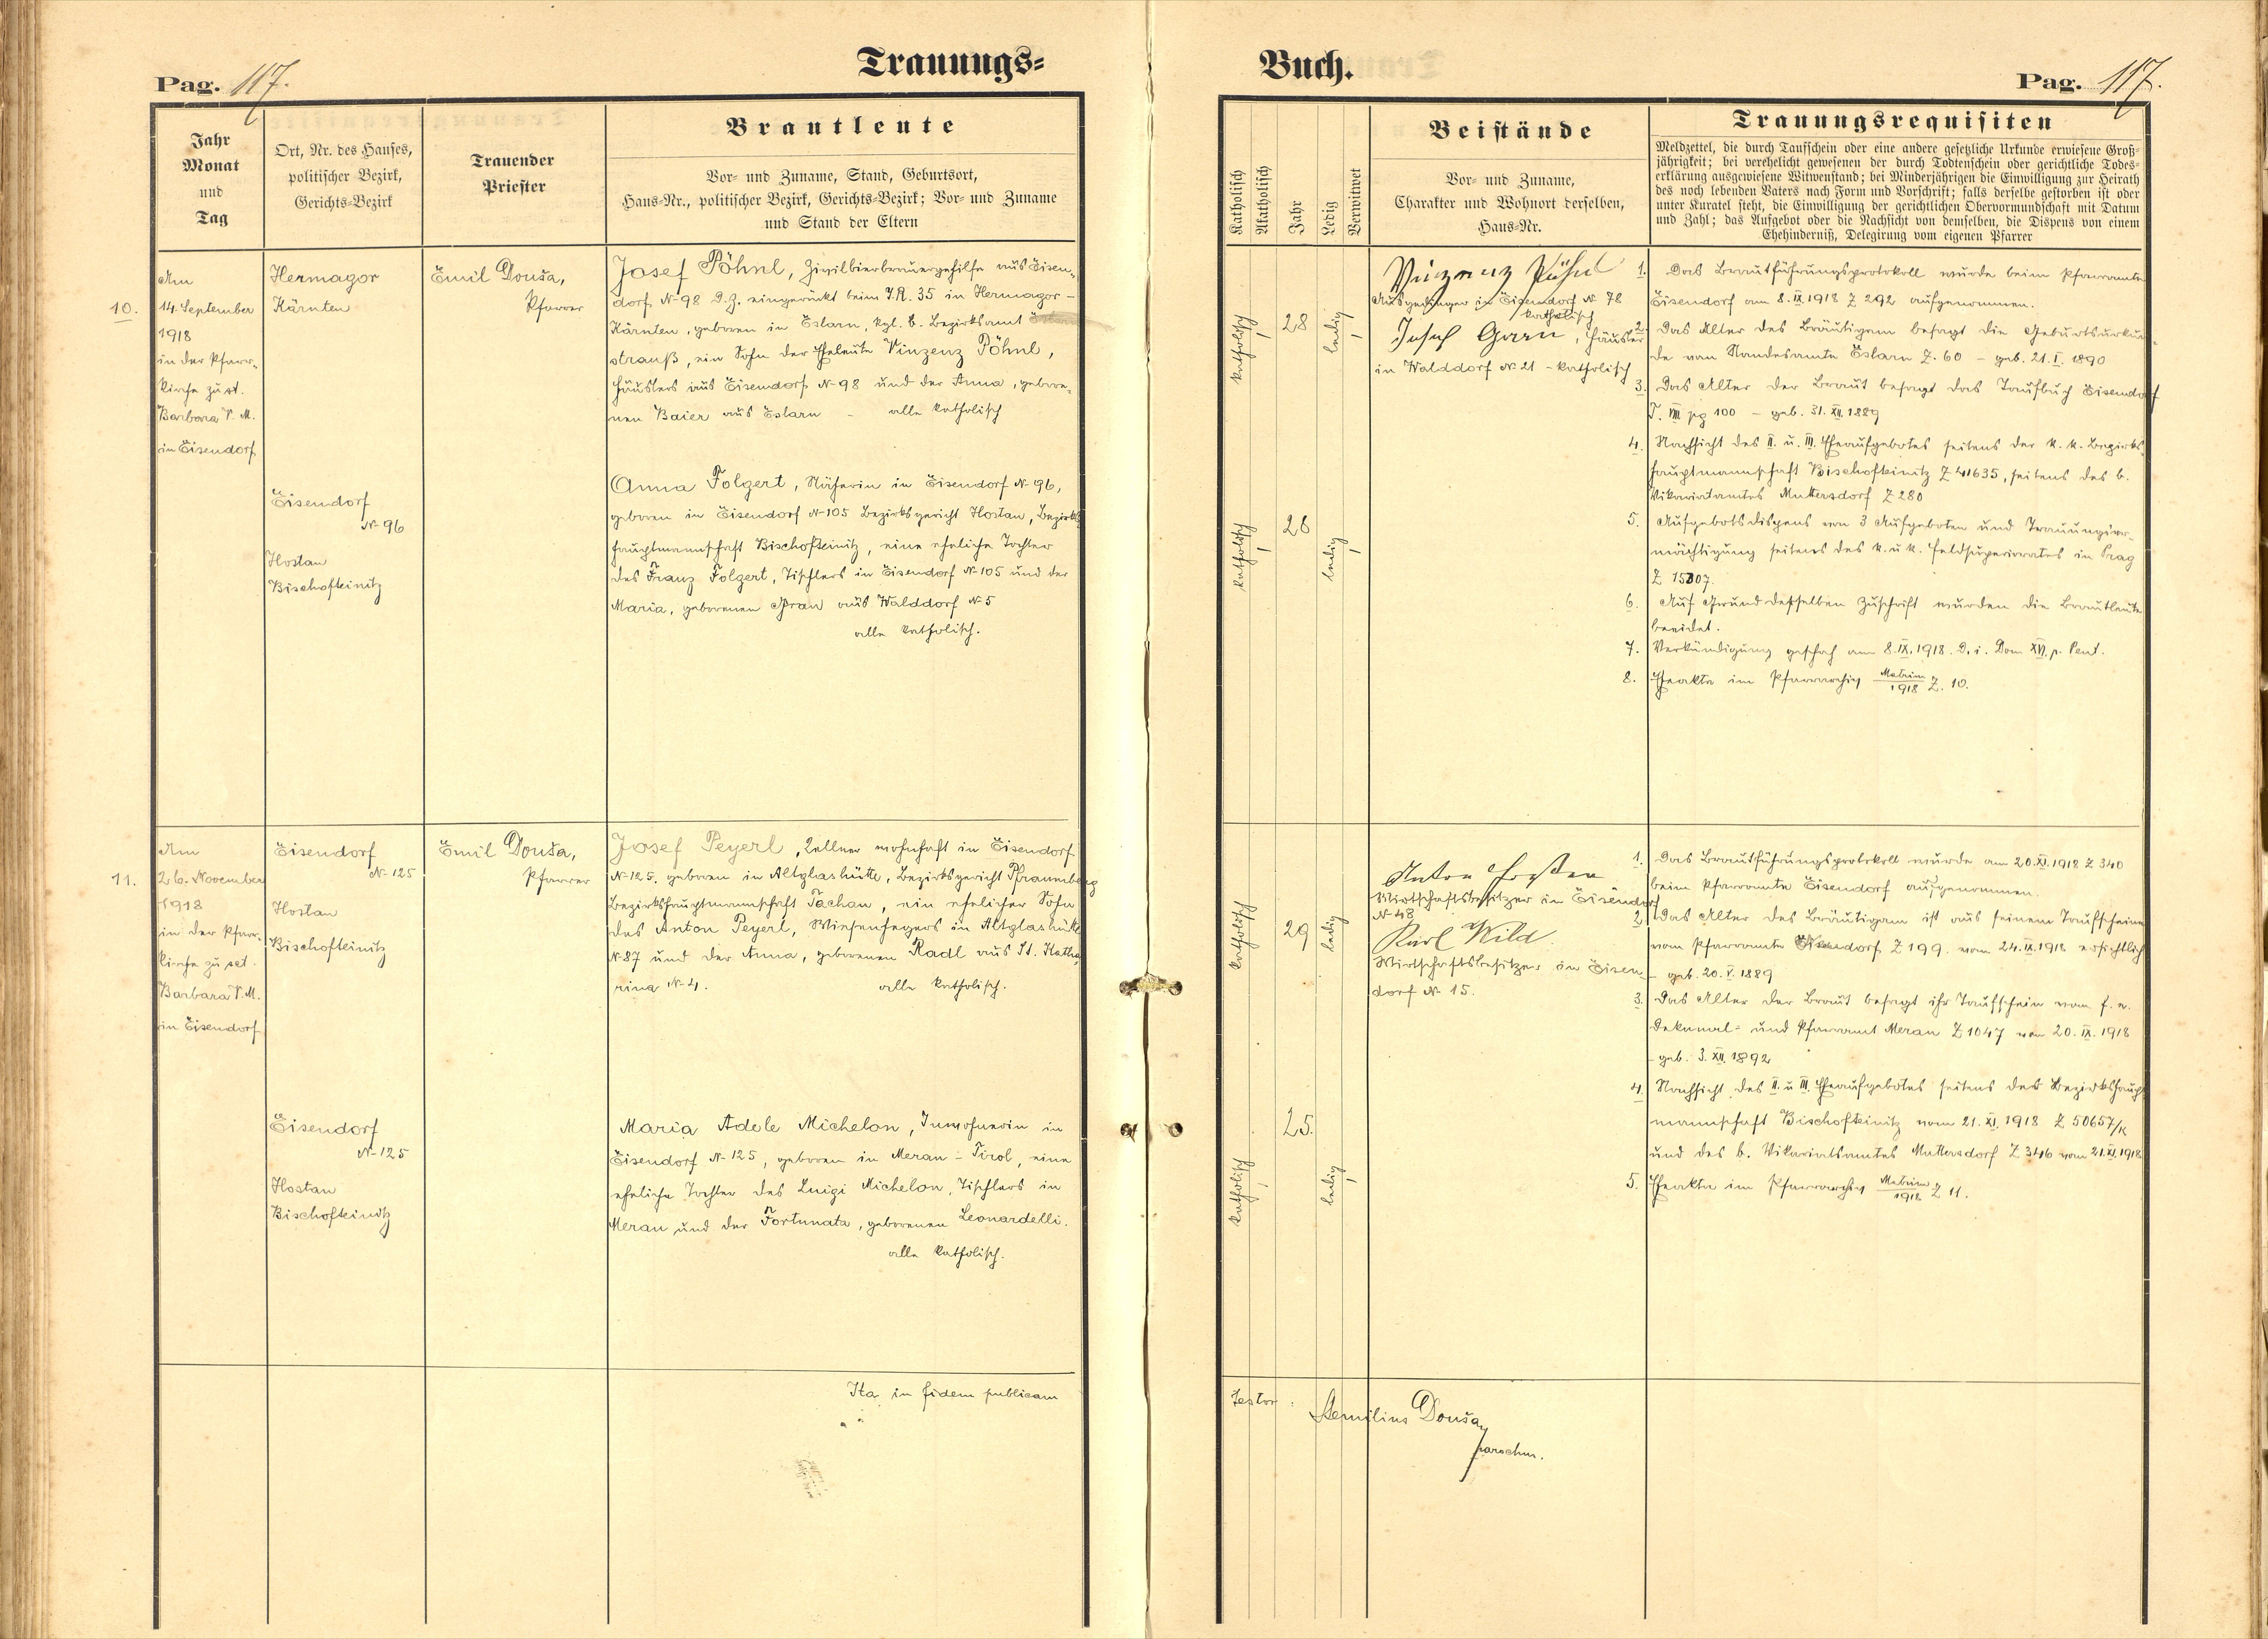 Trauungs-
Pag. 117.
Jahr
Monat
und
Tag
Ort, Nr. des Hauses,
politischer Bezirk,
Gerichts-Bezirk
Trauender
Priester
Brautleute
Vor- und Zuname, Stand, Geburtsort,
Haus-Nr., politischer Bezirk, Gerichts-Bezirk; Vor- und Zuname
und Stand der Eltern
10.
Am
14. September
1918
in der Pfarr-
kirche zu st.
Barbara V. M.
in Eisendorf
Hermagor
Kärnten
Emil Douša,
Pfarrer
Josef Pöhnl, Zivilbierbrauergehilfe aus Eisen-
dorf N- 98 D.Z. eingerückt beim I.R. 35 in Hermagor -
Kärnten, geboren in Eslarn, kgl. b. Bezirksamt
strauß, ein Sohn der Eheleute Vinzenz Pöhnl,
Häuslers aus Eisendorf N- 98 und der Anna, gebore-
nen Baier aus Eslarn - alle katholisch
Eisendorf
N- 96
Hostau
Bischofteinitz
Anna Folgert, Näherin in Eisendorf N- 96,
geboren in Eisendorf N- 105 Bezirksgericht Hostau, Bezirks
hauptmannschaft Bischofteinitz, eine eheliche Tochter
des Franz Folgert, Tischlers in Eisendorf N- 105 und der
Maria, geborenen Gran aus Walddorf N- 5
alle katholisch.
11.
Am
26. November
1918
in der Pfarr-
kirche zu set.
Barbara V. M.
in Eisendorf
Eisendorf
N- 125
Hostau
Bischofteinitz
Emil Douša,
Pfarrer
Josef Peyerl, Kellner wohnhaft in Eisendorf
N- 125. geboren in Altglashütte, Bezirksgericht Pfraumberg
Bezirkshauptmannschaft Tachau, ein ehelicher Sohn
des Anton Peyerl, Wiesenhegers in Altglashütte
N- 87 und der Anna, geborenen Radl aus St. Katha-
rina N- 4. alle katholisch.
Eisendorf
N- 125
Hostau
Bischofteinitz
Maria Adele Michelon, Inwohnerin in
Eisendorf N- 125, geboren in Meran - Tirol, eine
eheliche Tochter des Luigi Michelon, Tischlers in
Meran und der Fortunata, geborenen Leonardelli.
alle katholisch.
Ita in fidem publicam
Buch.
Pag. 117.
Katholisch
Akatholisch
Jahr
Ledig
Verwitwet
Beistände
Vor- und Zuname,
Charakter und Wohnort derselben,
Haus-Nr.
Trauungsrequisiten
Meldzettel, die durch Taufschein oder eine andere gesetzliche Urkunde erwiesene Groß-
jährigkeit; bei verehelicht gewesenen der durch Todtenschein oder gerichtliche Todes-
erklärung ausgewiesene Witwenstand; bei Minderjährigen die Einwilligung zur Heirath
des noch lebenden Vaters nach Form und Vorschrift; falls derselbe gestorben ist oder
unter Kuratel steht, die Einwilligung der gerichtlichen Obervormundschaft mit Datum
und Zahl; das Aufgebot oder die Nachsicht von demselben, die Dispens von einem
Ehehinderniß, Delegirung vom eigenen Pfarrer
katholisch
28
ledig
Vinzenz Pöhnl
Ausgedinger in Eisendorf N- 78
katholisch
Josef Gran, Häusler
in Walddorf N- 21 - katholisch
katholisch
28
ledig
1. Das Brautführungsprotokoll wurde beim Pfarramte
Eisendorf am 8. IX. 1918 Z 292 aufgenommen.
2. Das Alter des Bräutigam besagt die Geburtsurkun-
de vom Standesamte Eslarn Z. 60 - geb. 21. I. 1890
3. Das Alter der Braut besagt das Taufbuch Eisendorf
T. VIII pg 100 - geb. 31. XII. 1889
4. Nachsicht des II. u. III. Eheaufgebotes seitens der k. k. Bezirks-
hauptmannschaft Bischofteinitz Z 41635, seitens des b.
Vikariatamtes Muttersdorf Z 280
5. Aufgebotsdispens von 3 Aufgeboten und Trauungser-
mächtigung seitens des k. u. k. Feldsuperiorates in Prag
Z 15807.
6. Auf Grund desselben Zuschrift wurden die Brautleute
beeidet.
7. Verkündigung geschah am 8. IX. 1918. D. i. Dom XVI. p. Pent.
8. Eheakte im Pfarrarchiv Matrim/1918 Z. 10.
katholisch
29
ledig
Anton
Wirtschaftsbesitzer in Eisendorf
N- 48
Karl Wild
Wirtschaftsbesitzer in Eisen-
dorf N- 15.
katholisch
25.
ledig
1. Das Brautführungsprotokoll wurde am 20. XI. 1918 Z 340
beim Pfarramte Eisendorf aufgenommen.
2. Das Alter des Bräutigam ist aus seinem Taufscheine
vom Pfarramte Eisendorf Z 199. vom 24. IX. 1918 ersichtlich
- geb. 20. V. 1889
3. Das Alter der Braut besagt ihr Taufschein vom f. e.
Dekanal- und Pfarramt Meran Z 1047 vom 20. IX. 1918
- geb. 3. XII. 1892
4. Nachsicht des II. u III. Eheaufgebotes seitens der Bezirkshaupt
mannschaft Bischofteinitz vom 21. XI. 1918 Z 50657/K
und des b. Vikariatsamtes Muttersdorf Z 346 vom 21. XI. 1918
5. Eheakte im Pfarrarchiv Matrim/1918 Z 11.
testor.
Aemilius Douša,
parochus.